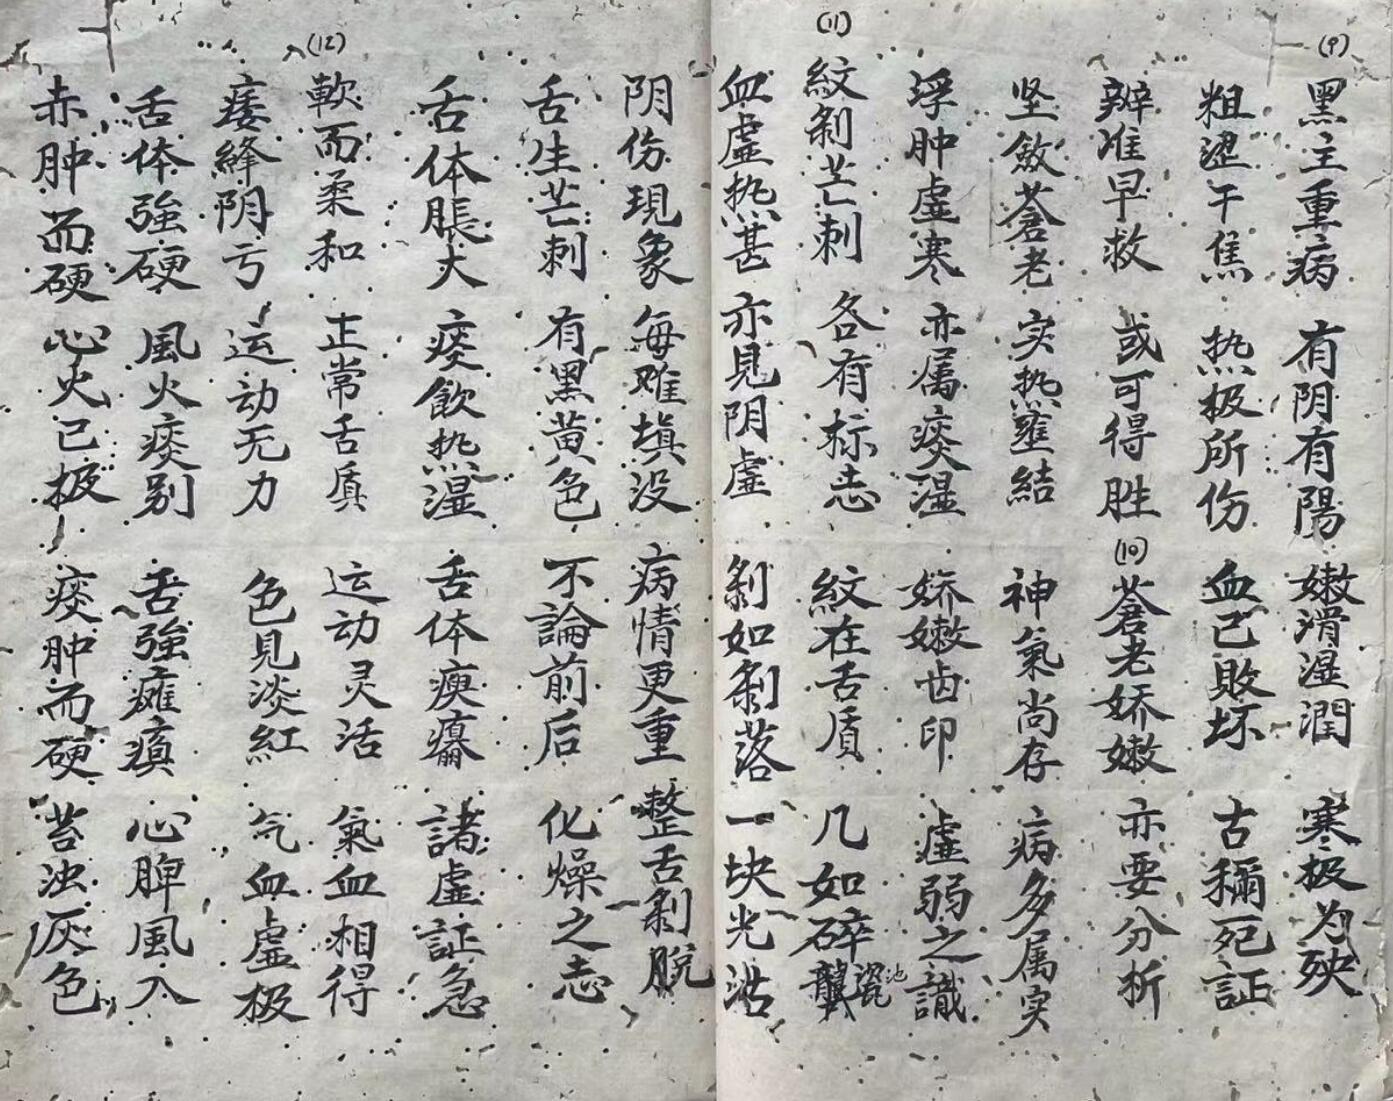 (9)
黑主重病 有阴有陽 嫩滑湿潤 寒极为殃
粗澀干焦 热极所伤 血已敗坏 古稱死証
辨准早救 或可得胜 (10) 蒼老娇嫩 亦要分析
坚斂蒼老 实热壅結 神氣尚存 病多属实
浮肿虚寒 亦属痰湿 娇嫩齿印 虚弱之識
(11)
紋剝芒刺 各有标志 紋在舌质 几如碎瓷
血虚热甚 亦見阴虚 剝如剝落 一块光洁
阴伤現象 每难填没 病情更重 整舌剝脫
舌生芒刺 有黑黄色 不論前后 化燥之志
舌体脹大 痰飲热湿 舌体瘐瘺 諸虚証急
(12)
軟而柔和 正常舌质 运动灵活 氣血相得
痿絳阴亏 运动无力 色見淡紅 气血虚极
舌体強硬 風火痰别 舌強癱瘨 心脾風入
赤肿而硬 心火已极 痰肿而硬 苔浊灰色